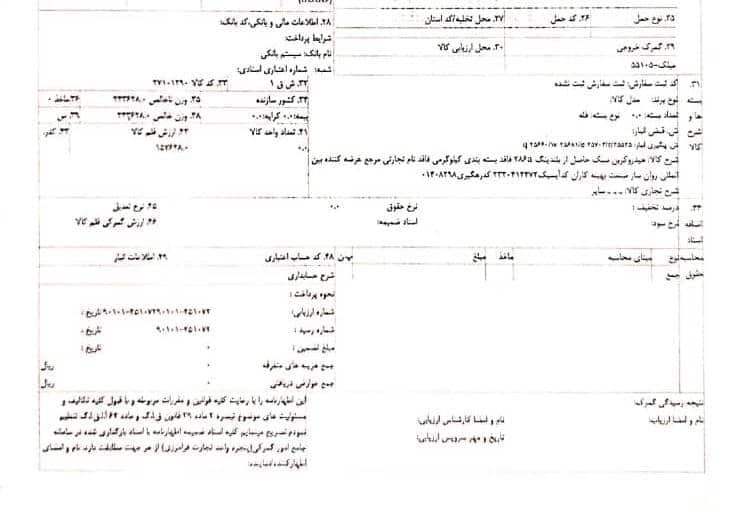 ۲۵. نوع حمل
۲۶. کد حمل
۲۷. محل تخلیه/کد استان
۲۸. اطلاعات مالی و بانکی، کد بانک:
شرایط پرداخت:
۲۹. گمرک خروجی
۳۰. محل ارزیابی کالا
نام بانک: سیستم بانکی
میلک-۵۵۱۰۵
شعبه: شماره اعتباری اسنادی:
۳۱. کد ثبت سفارش: ثبت سفارش ثبت نشده
۳۲. ش ق ۱
۳۳. کد کالا ۲۷۱۰۱۲۹۰
بسته نوع برند: مدل کالا:
۳۴. کشور سازنده
۳۵. وزن ناخالص ۲۴۳۶۲۸.۰
۳۶. ماخذ ۰
ها و تعداد بسته: ۰.۰ نوع بسته: فله
بیمه: ۰.۰ کرایه: ۰.۰
۳۸. وزن خالص ۲۴۳۶۲۸.۰
۳۹. س
شرح ش. قبض انبار:
۴۱. تعداد واحد کالا
۴۲. ارزش قلم کالا
۴۳. کفر.
کالا ش. پتگیری انبار:
۰.۰
۱۵۷۶۲۸.۰
شرح کالا: هیدروکربن سبک حاصل از بلندینگ ۲۸۶۵ فاقد بسته بندی کیلوگرمی فاقد نام تجارتی مرجع عرضه کننده بین
المللی روان ساز صنعت بهینه کاران کدآیسیک ۲۳۳۰۴۱۲۴۷۲ کدرهگیری ۰۱۴۰۸۲۹۸
شرح تجاری کالا: ... سایر
۴۴. درصد تخفیف:
۰.۰
نرخ حقوق
۴۵. نوع تعدیل
اضافه نرخ سود:
اسناد ضمیمه:
۴۶. ارزش گمرکی قلم کالا
اسناد
محاسبه نوع
مبنای محاسبه
ماخذ
مبلغ
۴۸. کد حساب اعتباری
۴۹. اطلاعات انبار
حقوق جمع
شرح حسابداری
نحوه پرداخت:
شماره ارزیابی: تاریخ:
شماره رسید: ۹۰۱۰۱-۴۵۱۰۷۲ تاریخ:
مبلغ تضمین: ۰ تاریخ:
جمع هزینه های متفرقه ۰ ریال
جمع عوارض دریافتی ۰ ریال
نتیجه رسیدگی گمرک:
نام و امضا ارزیاب:
نام و امضا کارشناس ارزیابی:
تاریخ و مهر سرویس ارزیابی:
این اظهارنامه را با رعایت کلیه قوانین و مقررات مربوطه و با قبول کلیه تکالیف و
مسئولیت های موضوع تبصره ۲ ماده ۳۹ قانون ق.ا.گ و ماده ۶۴ آ.ا.ق.ا.گ تنظیم
نمودم تصریح مینمایم کلیه اسناد ضمیمه اظهارنامه با اسناد بارگذاری شده در سامانه
جامع امور گمرکی(پنجره واحد تجارت فرامرزی) از هر جهت مطابقت دارد. نام و امضای
اظهارکننده/نماینده: